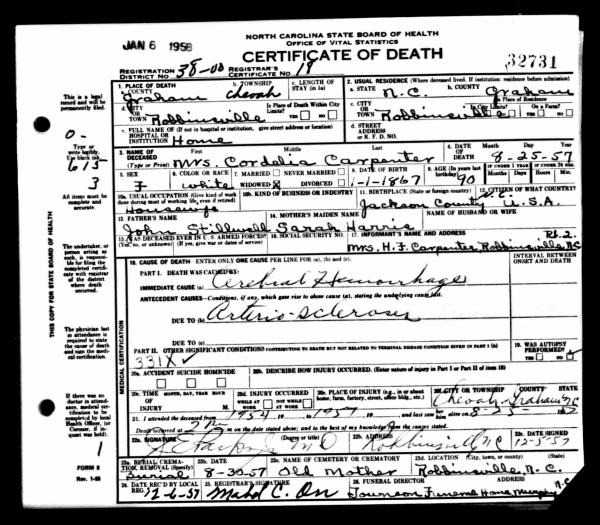 NORTH CAROLINA STATE BOARD OF HEALTH
OFFICE OF VITAL STATISTICS
JAN 6 1958
CERTIFICATE OF DEATH
32731
REGISTRATION DISTRICT NO. 38-00 REGISTRAR'S CERTIFICATE NO. 19
1. PLACE OF DEATH
a. COUNTY Graham
b. TOWNSHIP Cheoah
c. LENGTH OF STAY (in 1a)
2. USUAL RESIDENCE (Where deceased lived. If institution: residence before admission)
a. STATE N.C.
b. COUNTY Graham
d. CITY OR TOWN Robbinsville
Is Place of Death Within City Limits? YES NO
c. CITY OR TOWN Robbinsville
Is Place of Residence
In City Limits? YES NO
On a Farm? YES NO
e. FULL NAME OF (If not in hospital or institution, give street address or location) HOSPITAL OR INSTITUTION Home
d. STREET ADDRESS OR R. F. D. NO.
3. NAME OF DECEASED (Type or Print)
First Middle Last
Mrs. Cordelia Carpenter
4. DATE OF DEATH
Month Day Year
8-25-57
5. SEX F
6. COLOR OR RACE White
7. MARRIED NEVER MARRIED WIDOWED X DIVORCED
8. DATE OF BIRTH 1-1-1867
9. AGE (In years last birthday) 90
IF UNDER 1 YEAR Months Days
IF UNDER 24 HRS. Hours Min.
10a. USUAL OCCUPATION (Give kind of work done during most of working life, even if retired) Housewife
10b. KIND OF BUSINESS OR INDUSTRY
11. BIRTHPLACE (State or foreign country) Jackson County
12. CITIZEN OF WHAT COUNTRY? U.S.A.
13. FATHER'S NAME John Stillwell
14. MOTHER'S MAIDEN NAME Sarah Harris
NAME OF HUSBAND OR WIFE
15. WAS DECEASED EVER IN U. S. ARMED FORCES? (Yes, no, or unknown) (If yes, give war or dates of service)
16. SOCIAL SECURITY NO.
17. INFORMANT'S NAME AND ADDRESS Rt. 2.
Mrs. H.F. Carpenter Robbinsville, N.C.
18. CAUSE OF DEATH—ENTER ONLY ONE CAUSE PER LINE FOR (a), (b), and (c).
INTERVAL BETWEEN ONSET AND DEATH
PART I. DEATH WAS CAUSED BY:
IMMEDIATE CAUSE (a) Cerebral Hemorrhage
ANTECEDENT CAUSES—Conditions, if any, which gave rise to above cause (a), stating the underlying cause last.
DUE TO (b) Arterio-sclerosis
DUE TO (c)
PART II. OTHER SIGNIFICANT CONDITIONS CONTRIBUTING TO DEATH BUT NOT RELATED TO TERMINAL DISEASE CONDITION GIVEN IN PART I (a)
331X
19. WAS AUTOPSY PERFORMED? YES NO
20a. ACCIDENT SUICIDE HOMICIDE
20b. DESCRIBE HOW INJURY OCCURRED. (Enter nature of injury in Part I or Part II of item 18)
20c. TIME OF INJURY MONTH, DAY, YEAR HOUR M.
20d. INJURY OCCURRED WHILE AT WORK NOT WHILE AT WORK
20e. PLACE OF INJURY (e.g., in or about home, farm, factory, street, office bldg., etc.)
20f. CITY OR TOWNSHIP COUNTY STATE
Cheoah - Graham NC
21. I attended the deceased from 1954 to 1957 and last saw her alive on 8-25-57
Death occurred at m on the date stated above; and to the best of my knowledge from the causes stated.
22a. SIGNATURE (Degree or title) M D
22b. ADDRESS Robbinsville NC
22c. DATE SIGNED 12-5-57
23a. BURIAL, CREMATION, REMOVAL (Specify) Burial
23b. DATE 8-30-57
23c. NAME OF CEMETERY OR CREMATORY Old Mother
23d. LOCATION (City, town, or county) (State) Robbinsville, N.C.
24. DATE REC'D BY LOCAL REG. 12-6-57
25. REGISTRAR'S SIGNATURE Mabel C. Orr
26. FUNERAL DIRECTOR Townson Funeral Home Murphy N.C.
This is a legal record and will be permanently filed.
0-
Type or write legibly. Use black ink.
615
3
All items must be complete and accurate.
THIS COPY FOR STATE BOARD OF HEALTH
The undertaker, or person acting as such, is responsible for filing the completed certificate with registrar of the district where death occurred.
The physician last in attendance is required to state the cause of death and sign the medical certification.
If there was no doctor in attendance, medical certification to be completed by local Health Officer, (or Coroner, if inquest was held).
1
MEDICAL CERTIFICATION
FORM 8
Rev. 1-56